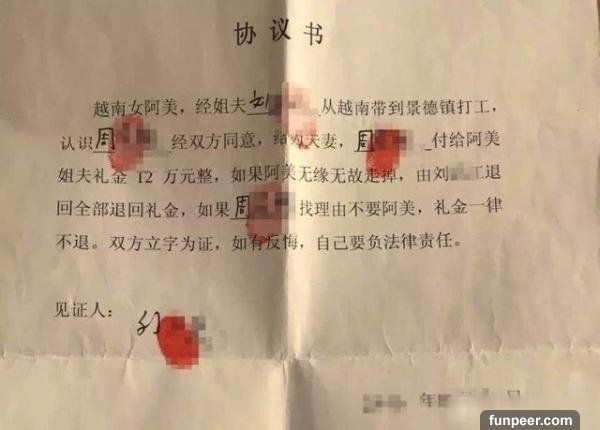 协议书
越南女阿美，经姐夫刘 从越南带到景德镇打工，
认识周 经双方同意，结为夫妻，周 付给阿美
姐夫礼金 12 万元整，如果阿美无缘无故走掉，由刘 工退
回全部退回礼金，如果周 找理由不要阿美，礼金一律
不退。双方立字为证，如有反悔，自己要负法律责任。
见证人：
年 日
funpeer.com